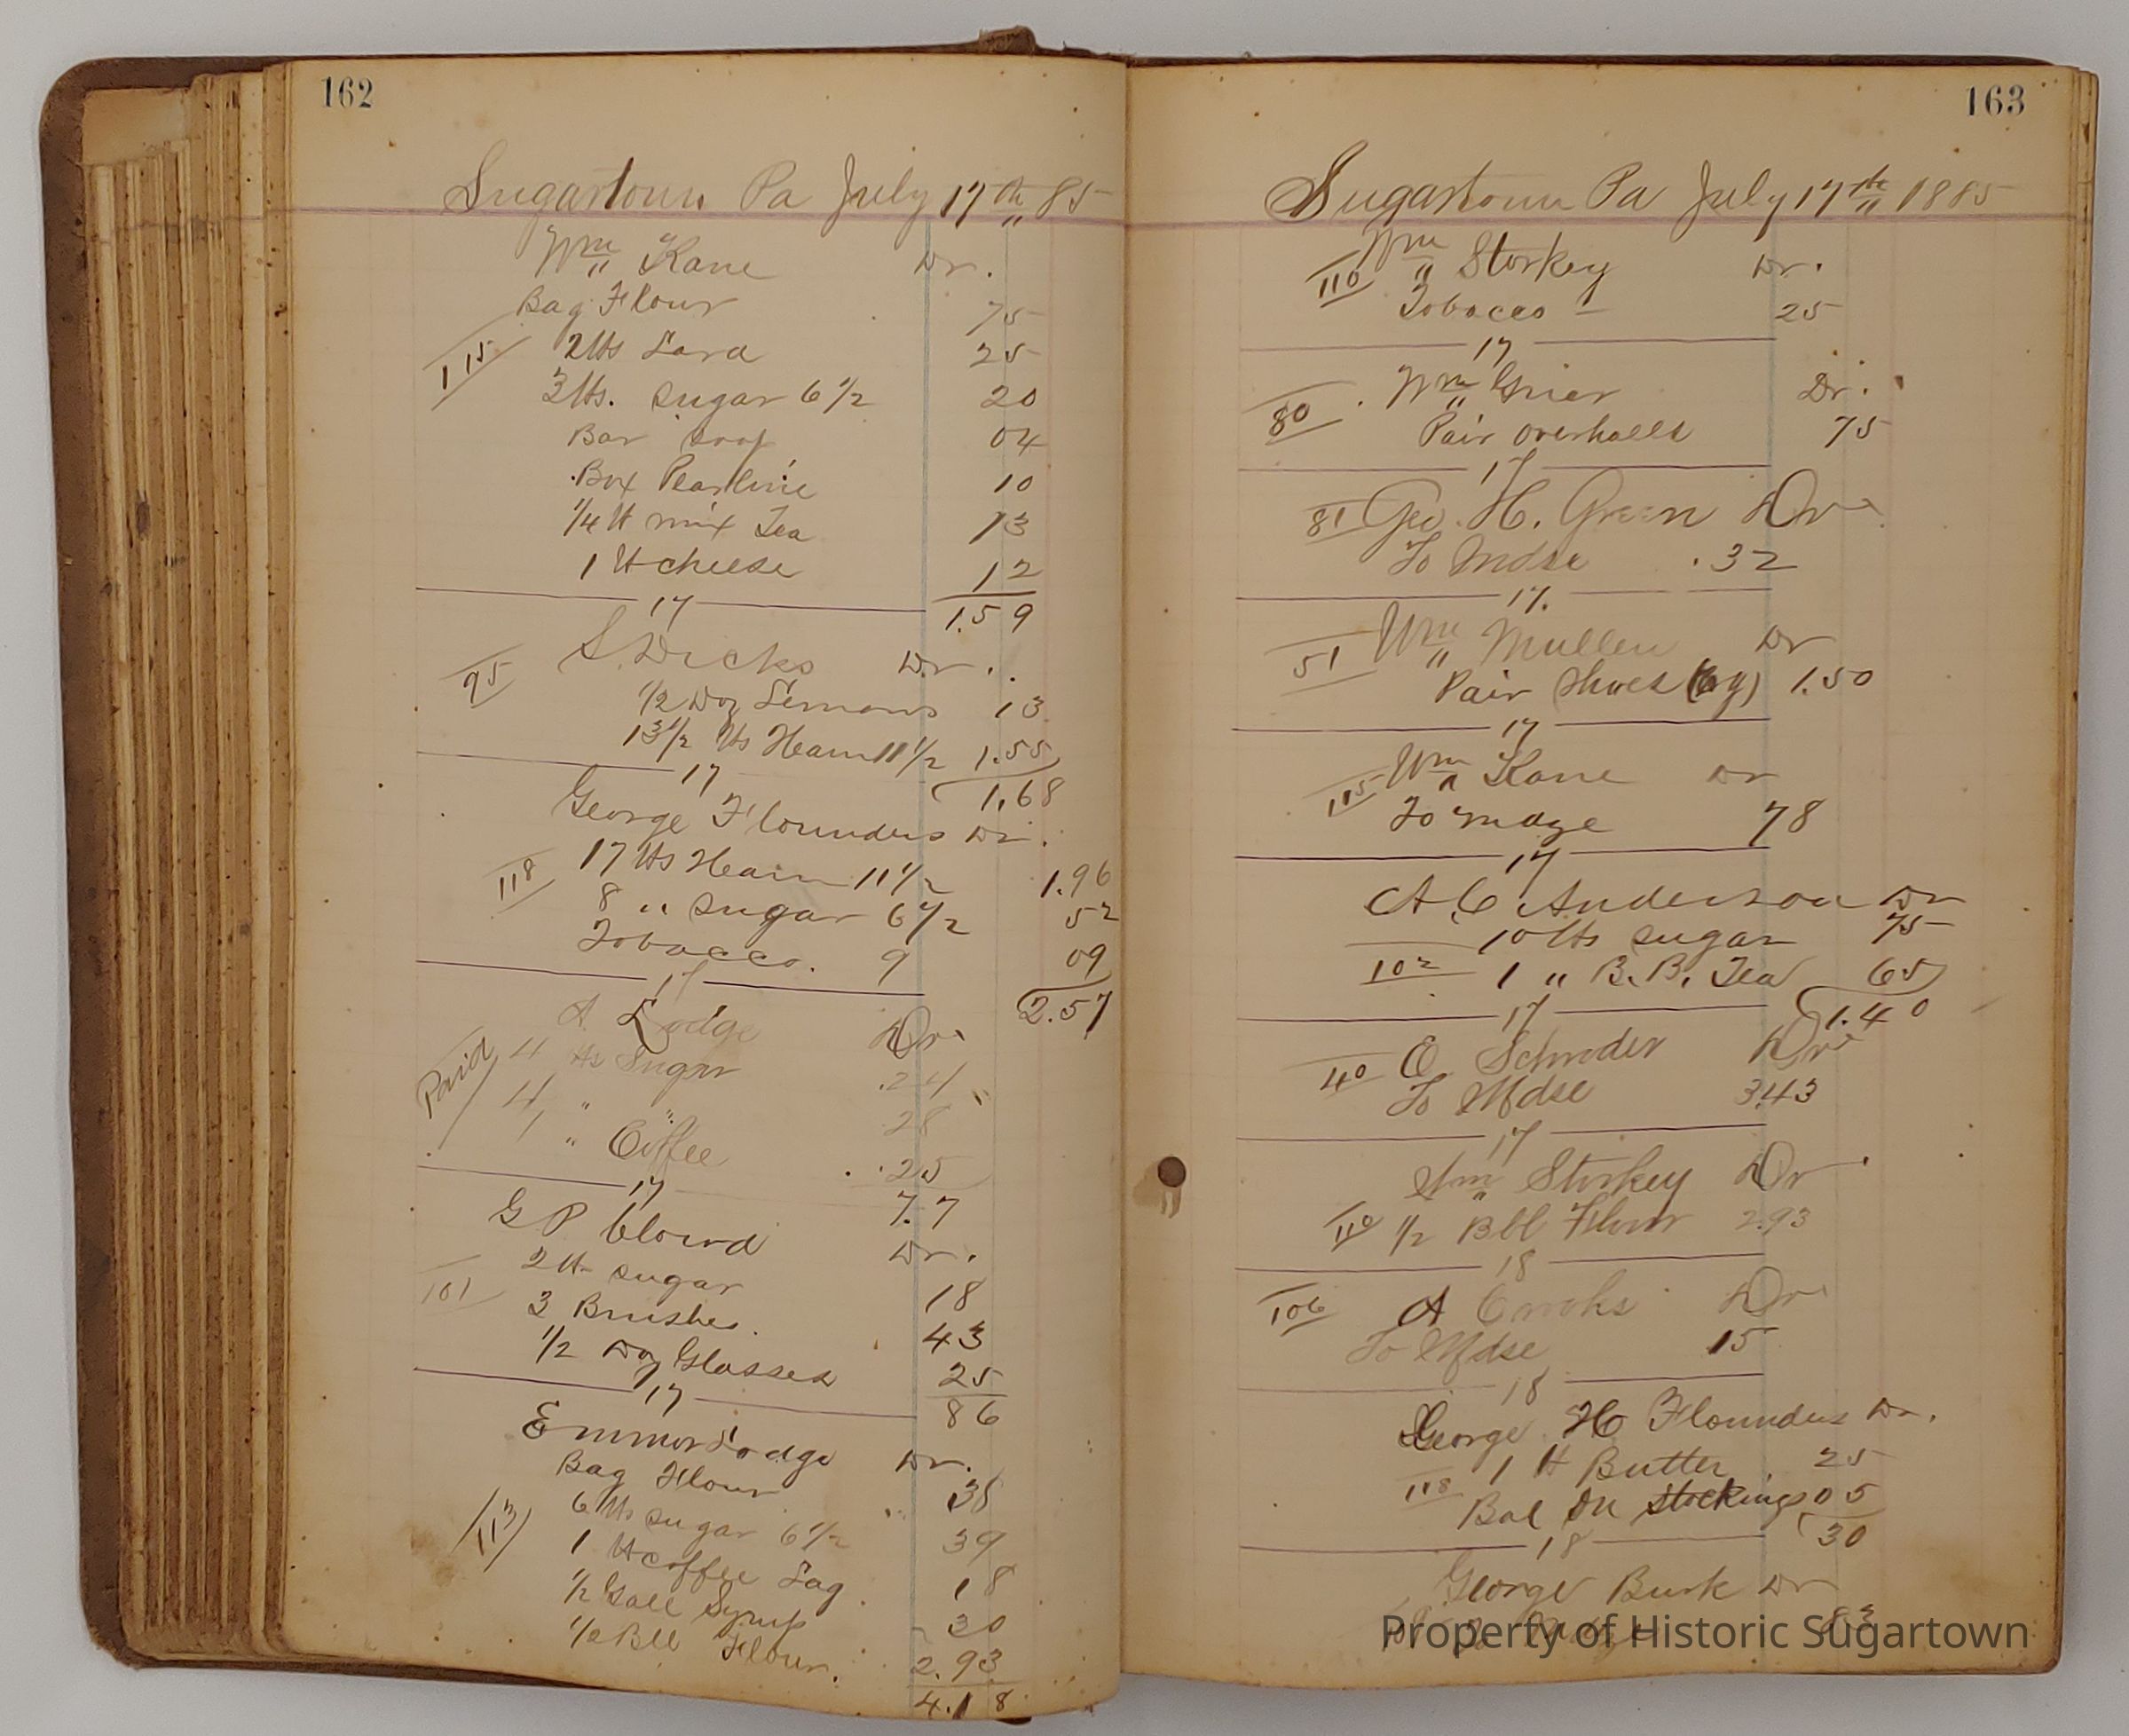 162
Sugartown Pa July 17th 85
Wm Kane Dr.
Bag Flour 75
115 2 lbs Lard 25
3 lbs. Sugar 6 1/2 20
Bar Soap 04
Box Pearline 10
1/4 lb mix Tea 13
1 lb cheese 12
17 1.59
S. Dicks Dr.
95
1/2 Doz Lemons 13
13 1/2 lbs Ham 11 1/2 1.55
17 1.68
George Flounders Dr.
118 17 lbs Ham 11 1/2 1.96
8 " Sugar 6 1/2 52
Tobacco. 9 09
17 2.57
A. Lodge Dr
Paid 4 lbs Sugar .24
4 " " 28
1 " Coffee .25
17 7.7
G P Cloud Dr.
2 lb Sugar 18
101 3 Brushes. 43
1/2 Doz Glasses 25
17 86
Emmor Lodge Dr.
Bag Flour 38
113 6 lbs Sugar 6 1/2 39
1 lb coffee Lag 18
1/2 Gall Syrup 30
1/2 Bbl Flour. 2.93
4.18
163
Sugartown Pa July 17th 1885
110 Wm Storkey Dr.
Tobacco 25
17
80 Wm Grier Dr.
Pair overhalls 75
17
81 Geo. H. Green Dr
To Mdse .32
17.
51 Wm Mullen Dr
Pair Shoes 1.50
17
115 Wm Kane Dr
To Mdze 78
17
A C Anderson Dr
10 lbs Sugar 75
102 1 " B.B. Tea 65
17 1.40
40 E Schroder Dr
To Mdse 3.43
17
Wm Storkey Dr
110 1/2 Bbl Flour 2.93
18
106 A Dr
To Mdse 15
18
George H Flounders Dr.
118 1 lb Butter 25
Bal on stockings 05
18 30
George Burk Dr
83
Property of Historic Sugartown